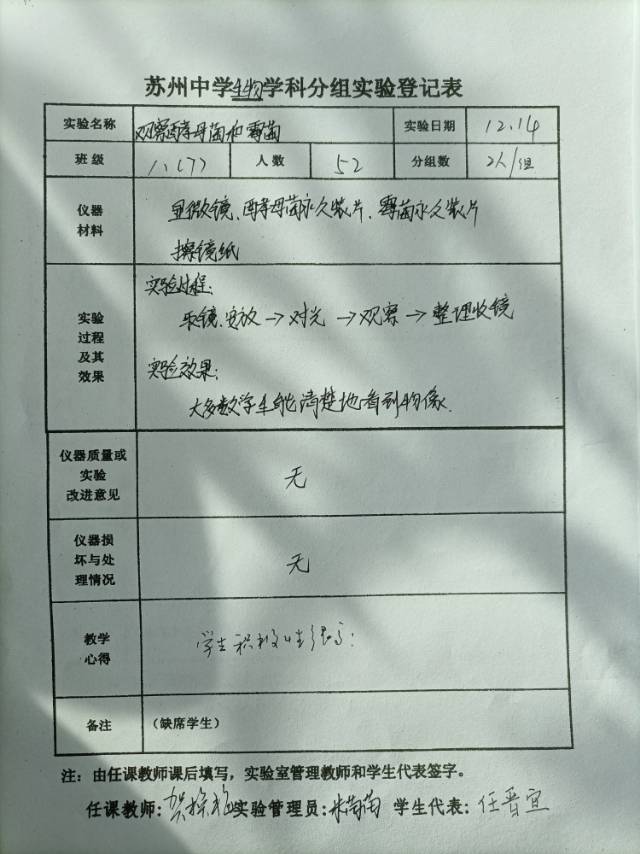 苏州中学生物学科分组实验登记表
实验名称 观察酵母菌和霉菌 实验日期 12.14
班级 八(7) 人数 52 分组数 2人/组
仪器材料 显微镜、酵母菌永久装片、霉菌永久装片
擦镜纸
实验过程及其效果 实验过程:
取镜.安放→对光→观察→整理收镜
实验效果:
大多数学生能清楚地看到物像.
仪器质量或实验改进意见 无
仪器损坏与处理情况 无
教学心得 学生积极性很高:
备注 (缺席学生)
注:由任课教师课后填写,实验室管理教师和学生代表签字。
任课教师: 实验管理员: 学生代表: 任晋宜